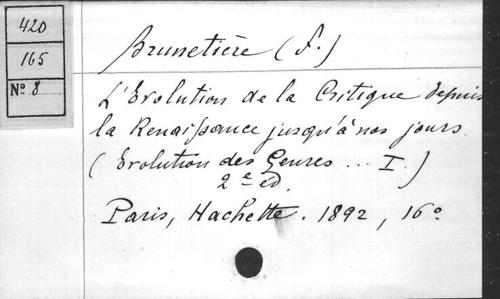 420
165
Nº 8
Brunetière (F.)
L'Evolution de la Critique depuis
la Renaissance jusqu'à nos jours.
(Evolution des Genres ... I.)
2e ed.
Paris, Hachette. 1892, 16º